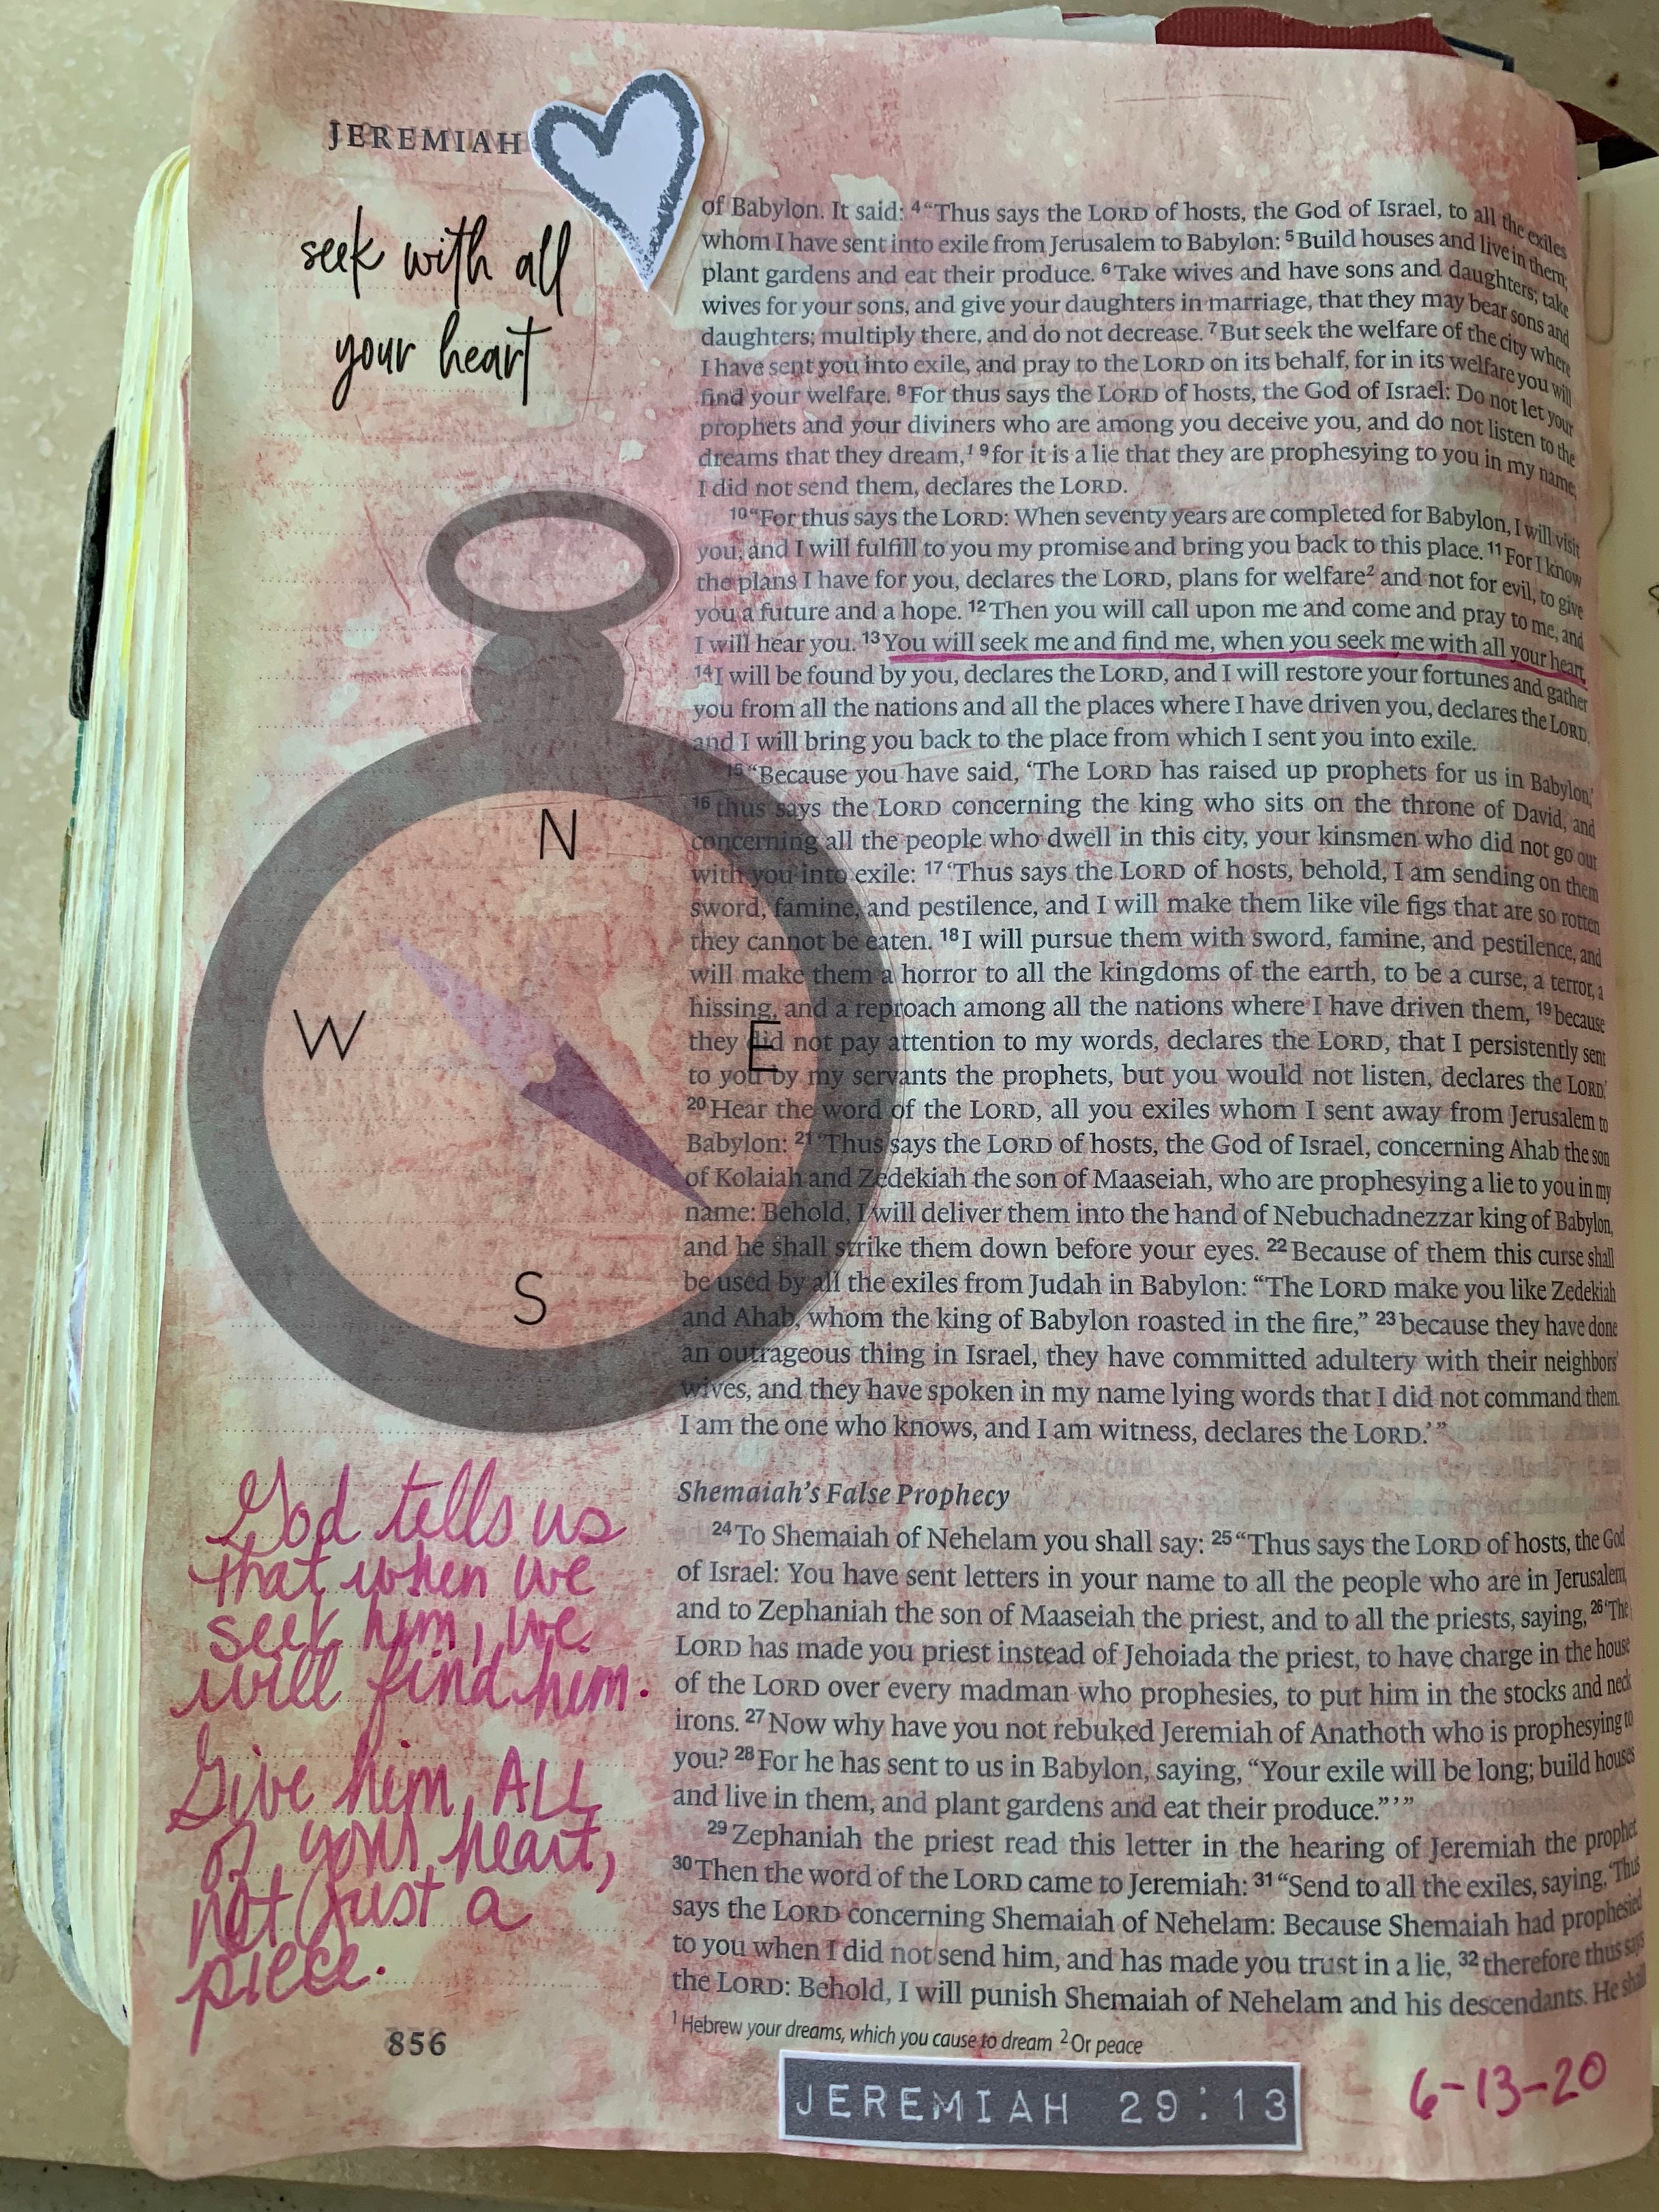 JEREMIAH
seek with all
your heart
of Babylon. It said: 4“Thus says the LORD of hosts, the God of Israel, to all the exiles
whom I have sent into exile from Jerusalem to Babylon: 5Build houses and live in them;
plant gardens and eat their produce. 6Take wives and have sons and daughters; take
wives for your sons, and give your daughters in marriage, that they may bear sons and
daughters; multiply there, and do not decrease. 7But seek the welfare of the city where
I have sent you into exile, and pray to the LORD on its behalf, for in its welfare you will
find your welfare. 8For thus says the LORD of hosts, the God of Israel: Do not let your
prophets and your diviners who are among you deceive you, and do not listen to the
dreams that they dream,1 9for it is a lie that they are prophesying to you in my name;
I did not send them, declares the LORD.
10“For thus says the LORD: When seventy years are completed for Babylon, I will visit
you, and I will fulfill to you my promise and bring you back to this place. 11For I know
the plans I have for you, declares the LORD, plans for welfare2 and not for evil, to give
you a future and a hope. 12Then you will call upon me and come and pray to me, and
I will hear you. 13You will seek me and find me, when you seek me with all your heart,
14I will be found by you, declares the LORD, and I will restore your fortunes and gather
you from all the nations and all the places where I have driven you, declares the LORD,
and I will bring you back to the place from which I sent you into exile.
15“Because you have said, ‘The LORD has raised up prophets for us in Babylon,’
16thus says the LORD concerning the king who sits on the throne of David, and
concerning all the people who dwell in this city, your kinsmen who did not go out
with you into exile: 17‘Thus says the LORD of hosts, behold, I am sending on them
sword, famine, and pestilence, and I will make them like vile figs that are so rotten
they cannot be eaten. 18I will pursue them with sword, famine, and pestilence, and
will make them a horror to all the kingdoms of the earth, to be a curse, a terror, a
hissing, and a reproach among all the nations where I have driven them, 19because
they did not pay attention to my words, declares the LORD, that I persistently sent
to you by my servants the prophets, but you would not listen, declares the LORD.’
20Hear the word of the LORD, all you exiles whom I sent away from Jerusalem to
Babylon: 21‘Thus says the LORD of hosts, the God of Israel, concerning Ahab the son
of Kolaiah and Zedekiah the son of Maaseiah, who are prophesying a lie to you in my
name: Behold, I will deliver them into the hand of Nebuchadnezzar king of Babylon,
and he shall strike them down before your eyes. 22Because of them this curse shall
be used by all the exiles from Judah in Babylon: “The LORD make you like Zedekiah
and Ahab, whom the king of Babylon roasted in the fire,” 23because they have done
an outrageous thing in Israel, they have committed adultery with their neighbors’
wives, and they have spoken in my name lying words that I did not command them.
I am the one who knows, and I am witness, declares the LORD.’”
N
W
E
S
Shemaiah’s False Prophecy
24To Shemaiah of Nehelam you shall say: 25“Thus says the LORD of hosts, the God
of Israel: You have sent letters in your name to all the people who are in Jerusalem,
and to Zephaniah the son of Maaseiah the priest, and to all the priests, saying, 26‘The
LORD has made you priest instead of Jehoiada the priest, to have charge in the house
of the LORD over every madman who prophesies, to put him in the stocks and neck
irons. 27Now why have you not rebuked Jeremiah of Anathoth who is prophesying to
you? 28For he has sent to us in Babylon, saying, “Your exile will be long; build houses
and live in them, and plant gardens and eat their produce.”’”
29Zephaniah the priest read this letter in the hearing of Jeremiah the prophet.
30Then the word of the LORD came to Jeremiah: 31“Send to all the exiles, saying, ‘Thus
says the LORD concerning Shemaiah of Nehelam: Because Shemaiah had prophesied
to you when I did not send him, and has made you trust in a lie, 32therefore thus says
the LORD: Behold, I will punish Shemaiah of Nehelam and his descendants. He shall
1 Hebrew your dreams, which you cause to dream 2 Or peace
God tells us
that when we
seek him, we
will find him.
Give him ALL
of your heart,
not just a
piece.
856
JEREMIAH 29:13
6-13-20